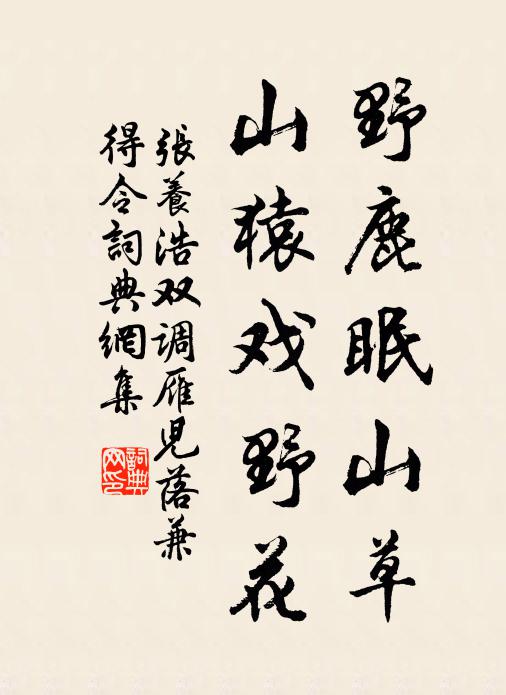 野鹿眠山草
山猿戏野花
張養浩双调雁児落兼
得令詞典網集
詞典网印